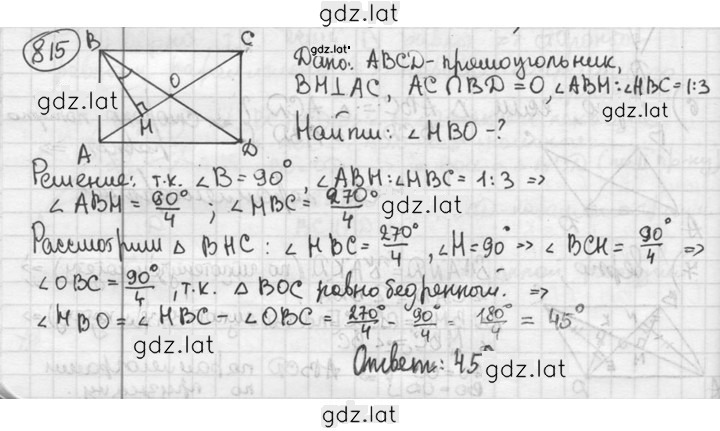 gdz.lat
815
B
C
O
H
A
D
Дано: ABCD - прямоугольник,
BH⊥AC, AC∩BD=O, ∠ABH:∠HBC=1:3
gdz.lat
Найти: ∠HBO-?
Решение: т.к. ∠B=90°, ∠ABH:∠HBC=1:3 =>
∠ABH = 90°/4, ∠HBC = 270°/4
gdz.lat
Рассмотрим △ BHC: ∠HBC = 270°/4, ∠H=90° => ∠BCH = 90°/4 =>
∠OBC = 90°/4, т.к. △ BOC равнобедренный. =>
∠HBO = ∠HBC - ∠OBC = 270°/4 - 90°/4 = 180°/4 = 45°
gdz.lat
Ответ: 45°
gdz.lat
gdz.lat